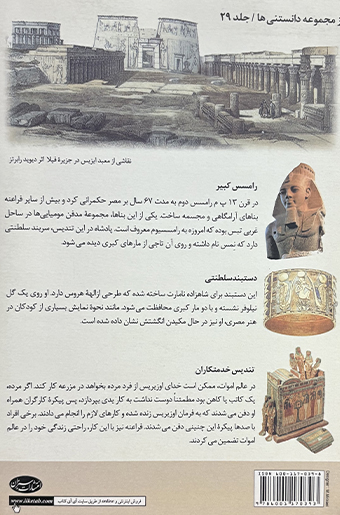 از مجموعه دانستنی ها / جلد ۲۹
نقاشی از معبد ایزیس در جزیرهٔ فیلا اثر دیوید رابرتز
رامسس کبیر
در قرن ۱۳ پ م رامسس دوم به مدت ۶۷ سال بر مصر حکمرانی کرد و بیش از سایر فراعنه
بناهای آرامگاهی و مجسمه ساخت. یکی از این بناها، مجموعهٔ مدفن مومیایی‌ها در ساحل
غربی تبس بوده که امروزه به رامسسیوم معروف است. پادشاه در این تندیس، سربند سلطنتی
دارد که نمس نام داشته و روی آن تاجی از مارهای کبری دیده می شود.
دستبند سلطنتی
این دستبند برای شاهزاده نامارت ساخته شده که طرحی از الههٔ هروس دارد. او روی یک گل
نیلوفر نشسته و با دو مار کبری محافظت می‌شود. مانند نحوهٔ نمایش بسیاری از کودکان در
هنر مصری، او نیز در حال مکیدن انگشتش نشان داده شده است.
تندیس خدمتکاران
در عالم اموات، ممکن است خدای اوزیریس از فرد مرده بخواهد در مزرعه کار کند. اگر مرده،
یک کاتب یا کاهن بود مطمئناً دوست نداشت به کار یدی بپردازد، پس پیکرهٔ کارگران همراه
او دفن می شدند که به فرمان اوزیریس زنده شده و کارهای لازم را انجام می دادند. برخی افراد
با صدها پیکرهٔ این چنینی دفن می شدند. فراعنه نیز با این کار، راحتی زندگی خود را در عالم
اموات تضمین می کردند.
فروش اینترنتی و مشاهده از طریق سایت آی آی کتاب
www.iiketab.com